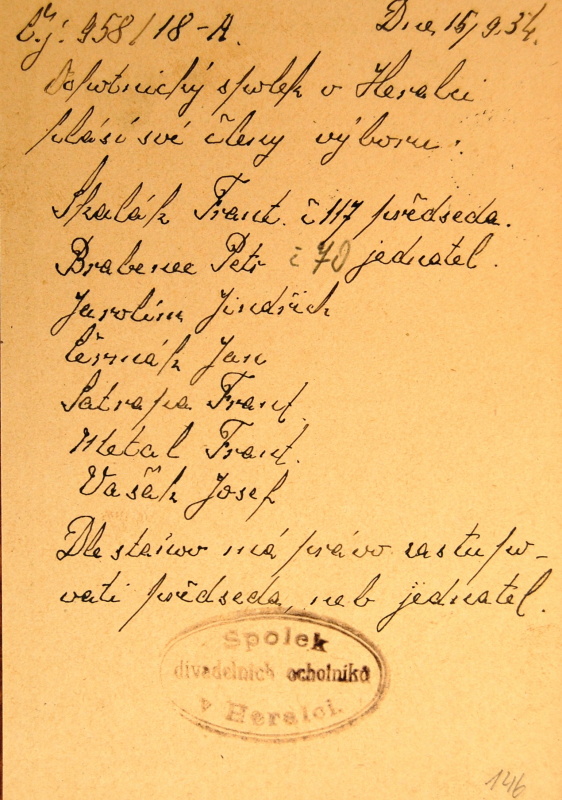 Č.j. 958/18-A. Dne 15/9.34.
Ochotnický spolek v Heralci
hlásí své členy výboru:
Skalák Frant. č 117 předseda.
Brabenec Petr č 70 jednatel.
Jarolím Jindřich
Čermák Jan
Satrapa Frant.
Metal Frant.
Vašák Josef
Dle stanov má právo zastupo-
vati předseda, neb jednatel.
Spolek
divadelních ochotníků
v Heralci.
146